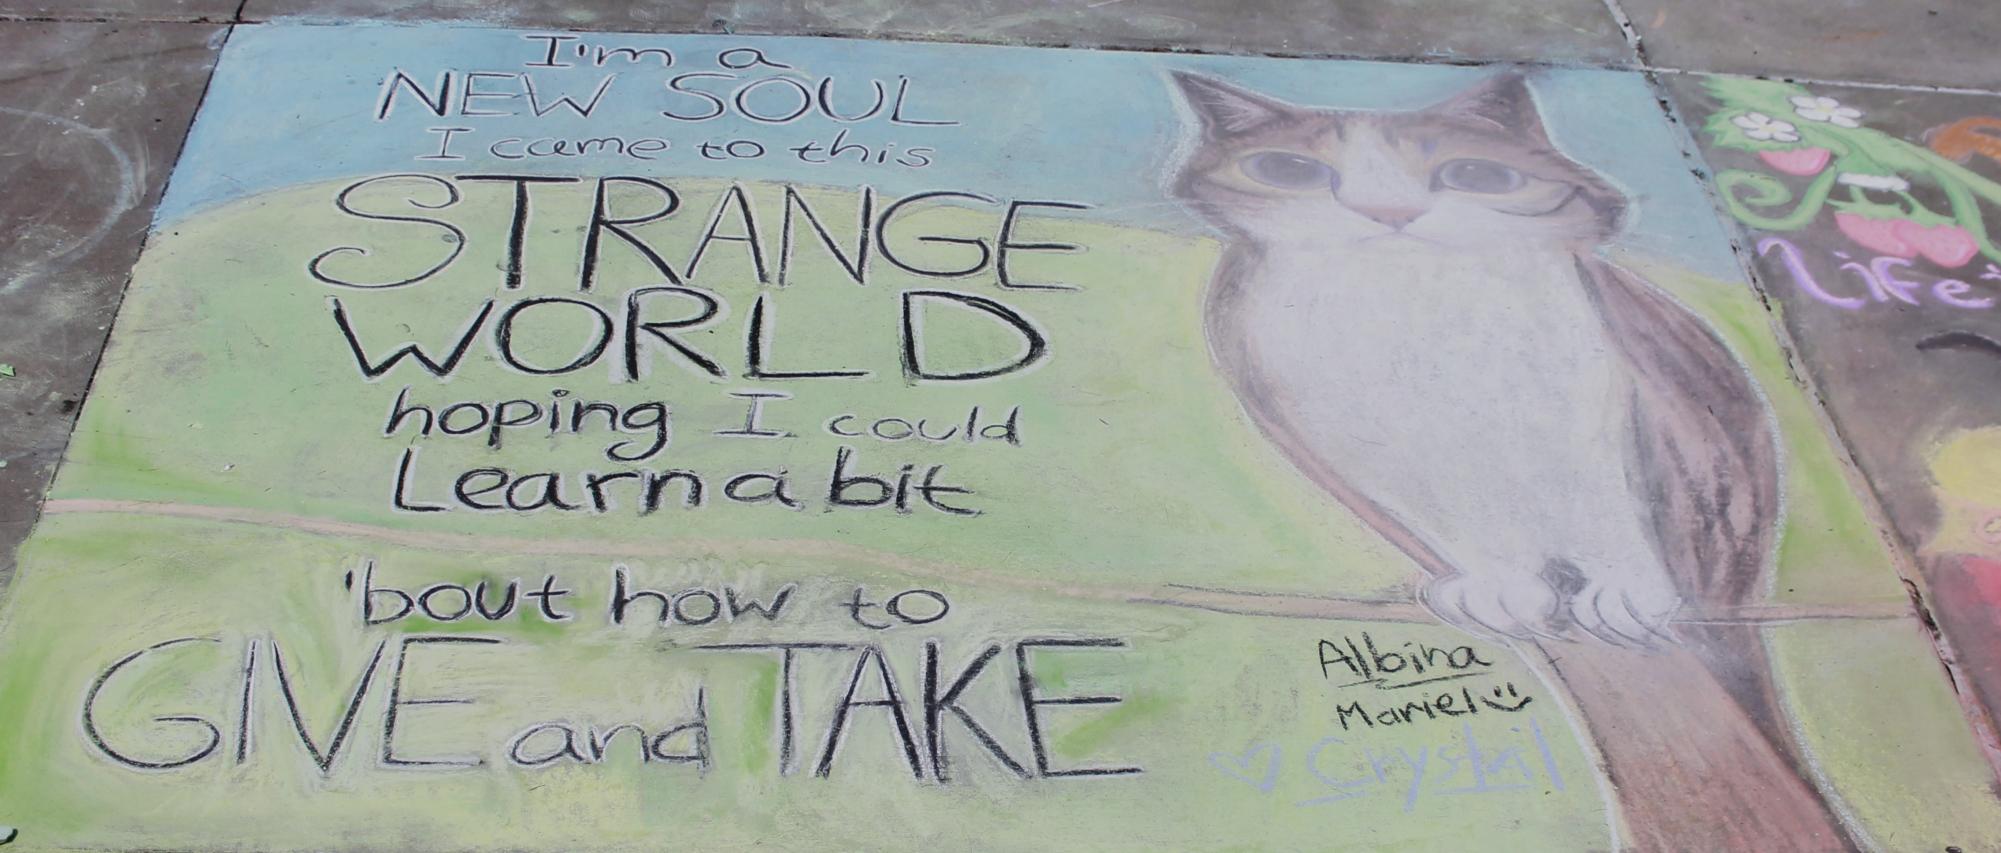 I'm a
NEW SOUL
I came to this
STRANGE
WORLD
hoping I could
Learn a bit
'bout how to
GIVE and TAKE
Albina
Mariel
Crystal
Life